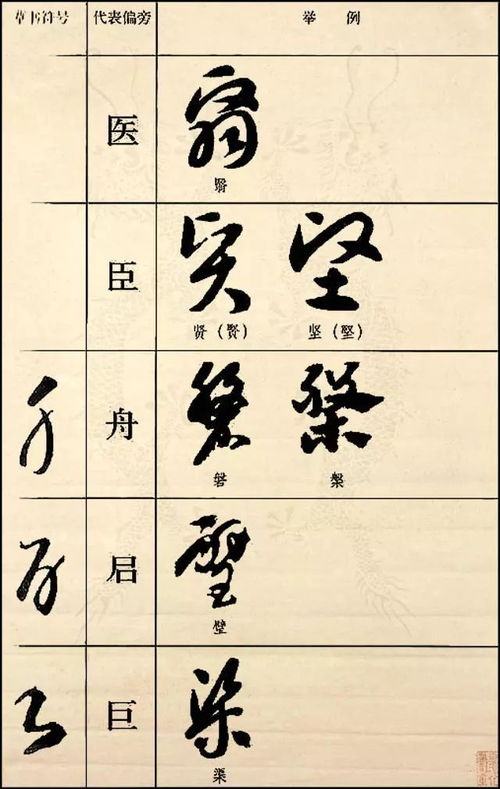 草书符号 代表偏旁 举 例
医
翳
臣
贤（賢） 坚（堅）
舟
磐 槃
巨
渠